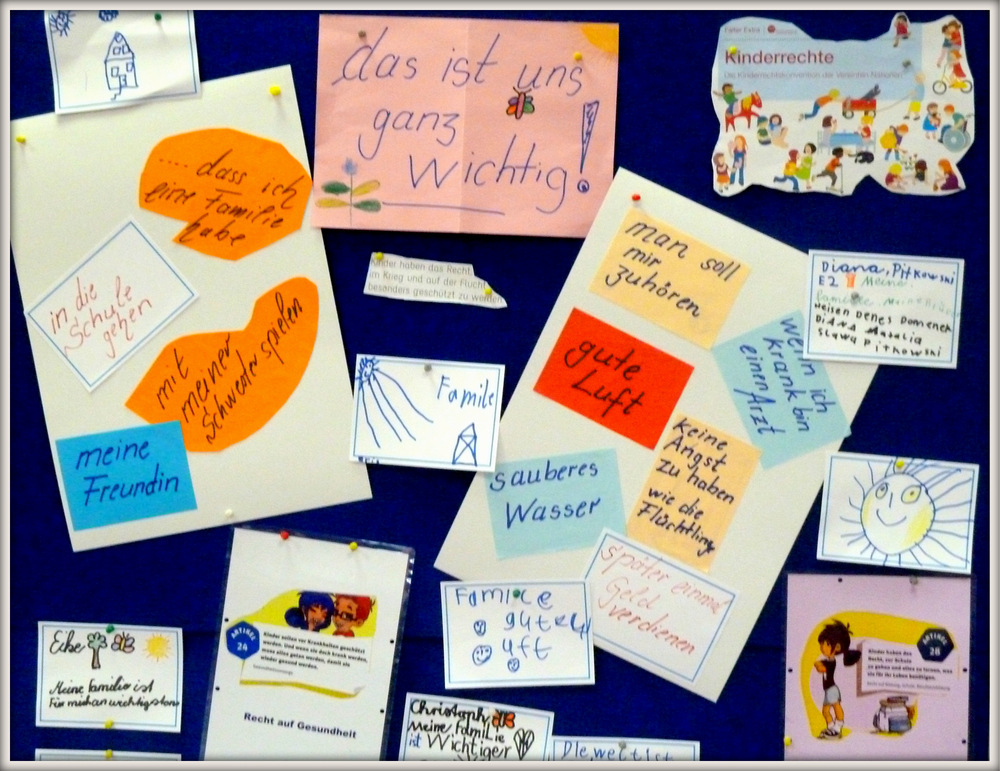 das ist uns
ganz
wichtig!
Kinderrechte
Die Kinderrechtskonvention der Vereinten Nationen
.... dass ich
eine Familie
habe
in die
Schule
gehen
mit
meiner
Schwester spielen
meine
Freundin
Kinder haben das Recht,
im Krieg und auf der Flucht
besonders geschützt zu werden.
man soll
mir
zuhören
gute
Luft
wenn ich
krank bin
einen Arzt
keine
Angst
zu haben
wie die
Flüchtling
sauberes
Wasser
später einmal
Geld
verdienen
Diana, Pitkowski
E2 Meine
Familie.
Diana Natalia
Slawa Pitkowski
Familie
ARTIKEL
24
Kinder sollen vor Krankheiten geschützt
werden. Und wenn sie doch krank werden,
muss alles getan werden, damit sie
wieder gesund werden.
Recht auf Gesundheit
Famice
gute
uft
Eike
Meine Familie ist
Für mich am wichtigsten
Christoph
Meine Familie
ist Wichtiger
Die welt ist
ARTIKEL
28
Kinder haben das
Recht, zur Schule
zu gehen und alles zu lernen, was
sie für ihr Leben benötigen.